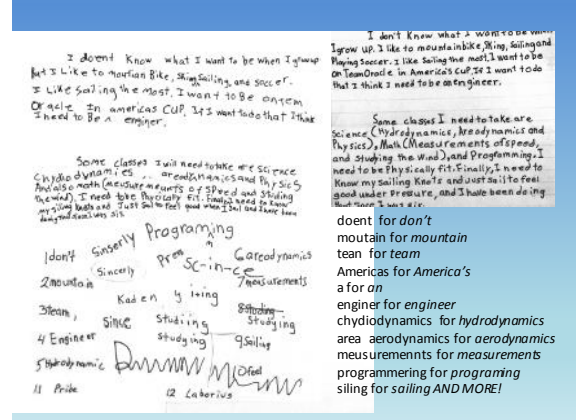 I doent Know what I want to be when I growup
But I Like to moutian Bike, Skiing, Sailing, and soccer.
I Like Sailing the most. I want to Be on tem
Oracle In americas CUP. If I want todo that I think
I need to Be a enginer.
Some classes I will need to take are science
Chydiodynamies .. areodynnamics and Physics
And also math (meusure meunts of speed and studing
the wind). I need to be Physically fit. Finaley I need to know
my siling knots and Just Sail to feel good when I Sail and I have been
doing that since I was six.
Sinserly Programing
1 don't Sincerly Pres Sc-in-ce 6 areodynamics
2 mountain 7 measurements
Kaden y iting
3 team, Since Studiing 8 Studing Studying
4 Engineer studying 9 Sailing
5 Hydrodynamic 10 feel
11 Pribe 12 Laborius
I don't Know what I want to be when
I grow up. I like to mountain bike, Skiing, Sailing and
Playing Soccer. I like Sailing the most. I want to be
on Team Oracle in America's Cup. If I want to do
that I think I need to be an engineer.
Some classes I need to take are
Science (Hydrodynamics, Areodynamics and
Physics), Math (Measurements of speed,
and studying the Wind), and Programming. I
need to be Physically fit. Finally, I need to
Know my Sailing Knots and Just Sail to feel
good under Pressure, and I have been doing
that since I was six.
doent for don't
moutain for mountain
tean for team
Americas for America's
a for an
enginer for engineer
chydiodynamics for hydrodynamics
area aerodynamics for aerodynamics
meusuremennts for measurements
programmering for programing
siling for sailing AND MORE!